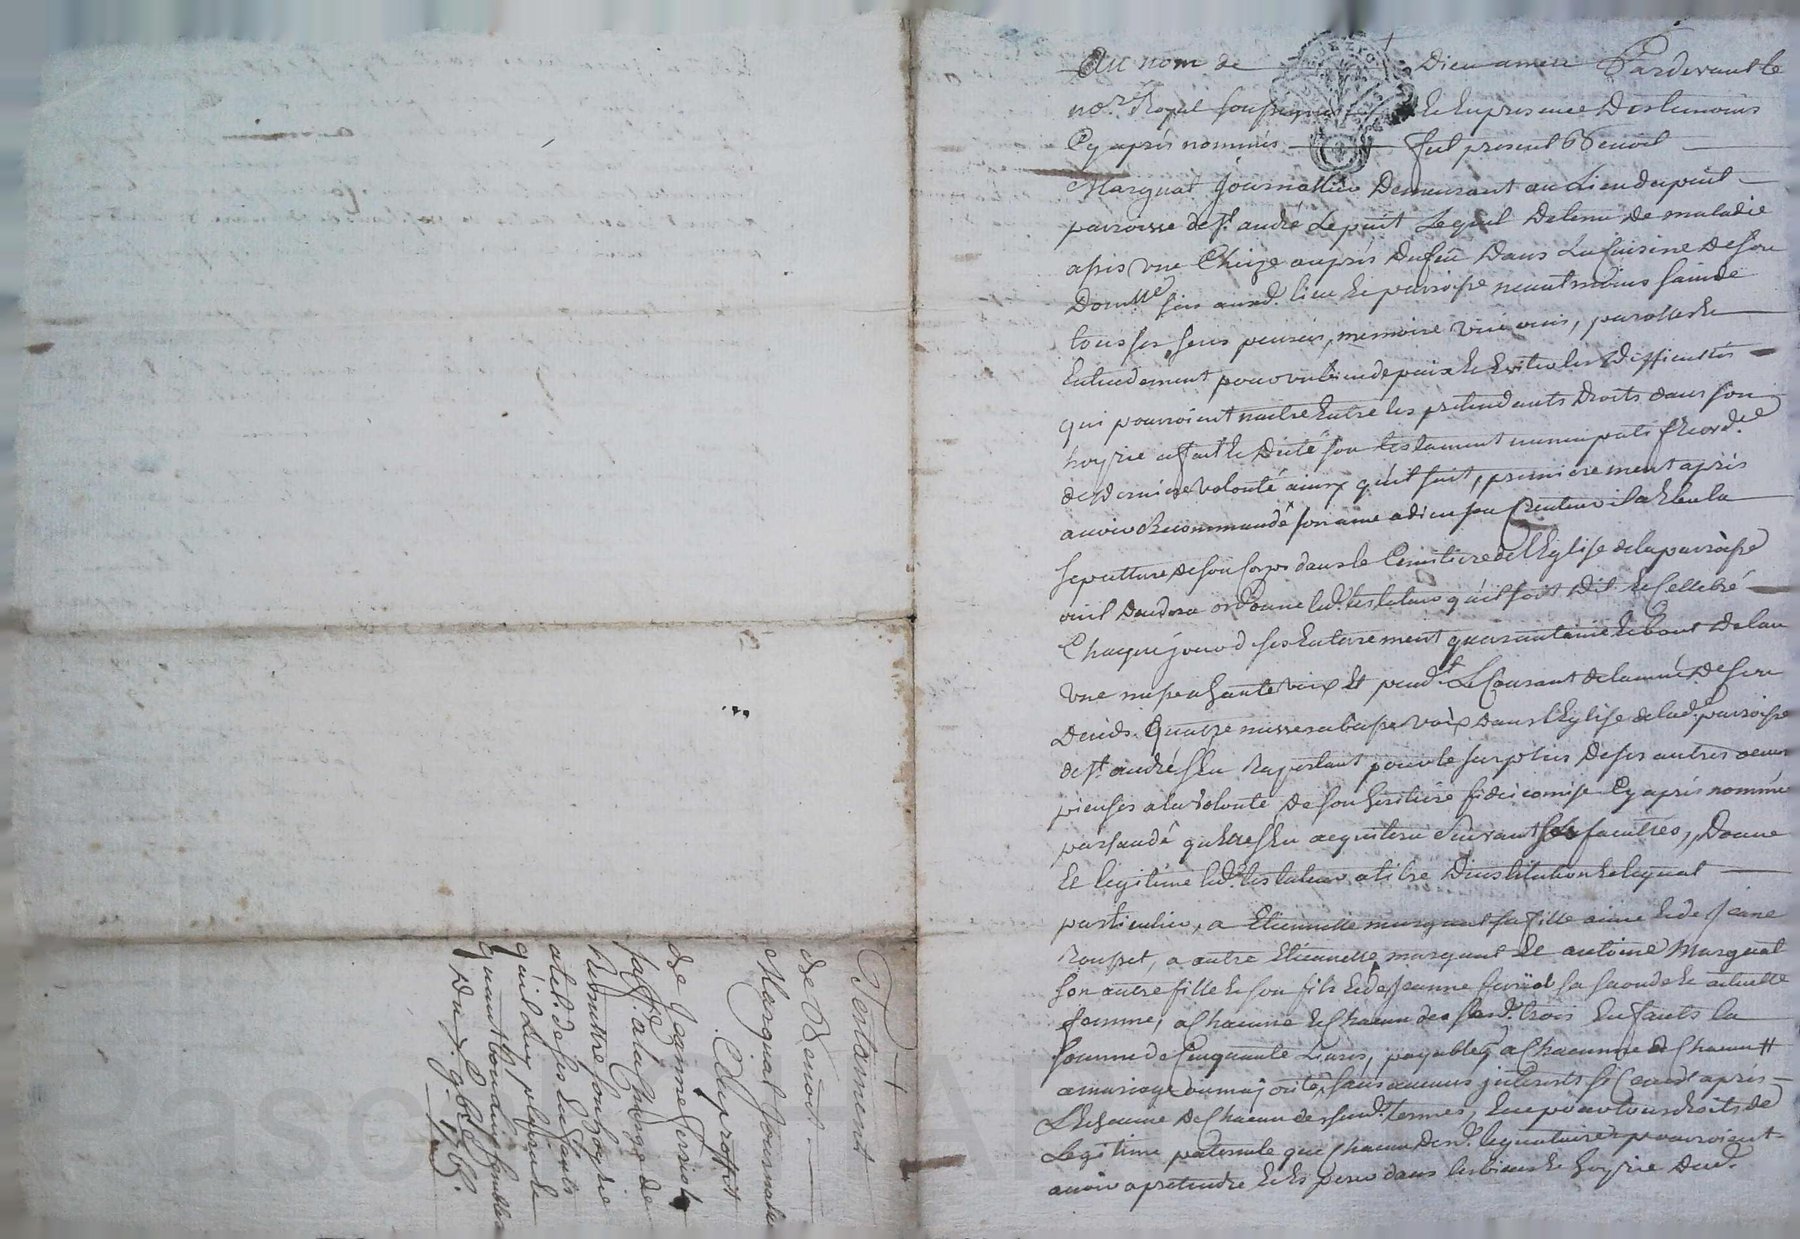 Au nom de Dieu amen Pardevant le
no.re Royal soussigné Et En presence Des temoins
Cy après nommés fut present Benoit
Marquat Journallier Demeurant au Lieu du puit
parroisse de St. andré Le puit Lequel Detenu de maladie
assis une Cheize auprès Du feu Dans La Cuisine De son
Dom.lle sis aud. lieu Et parroisse neantmoins sain de
tous ses sens pensées, memoire parolle Et
Entendement pour Et Eviter les Difficultés
qui pourroient naitre Entre les pretendants Droits dans son
hoyrie a fait Et Dicté son testament nuncupatif
de Derniere volonté ainsy qu'il suit, premierement après
avoir Recommandé son ame a dieu son Createur il a Eleu la
sepulture De son Corps dans le Cimetiere de l'Eglise de la parroisse
ordonne led. testateur qu'il soit Dit Et Cellebré
Chaque jour d ses Enterrement quarantaine Et bout De lan
une messe a haute voix Et pend.t Le Courant de lannée De son
Decéds quatre messes a basse voix Dans l'Eglise de lad. parroisse
de St. andré s'En Raportant pour le surplus De ses autres oeuvres
pieuses a la volonté De son heritiere fideicomise Cy après nommée
persuadé qu'Elle s'En acquittera suivant ses facultées, Donne
Et legitime led. testateur a titre D'institution Et legat
particulier, a Etiennette marquat sa fille ainée Et de Jeanne
Rousset, a autre Etiennette marquat Et antoine Marquat
son autre fille Et son fils Et de Jeanne sa seconde Et actuelle
femme, a Chacune Et Chacun des trois Enfants la
somme de Cinquante Livres, payables a Chacune Et Chacun
a mariage ou majorité, sans aucuns interests si Ce n'est après
L'Echeance De Chacun desd. termes, Et ce pour tous Droits de
Legitime paternelle que Chacun Desd. legataires pourroient
avoir a pretendre Et Esperer dans les biens Et hoyrie Dud.
Testament
de Benoit
Marquat Journalier
Au proffit
de Jeanne
sa ffe a la Charge de
Remettre son hoyrie
a tel de ses Enfants
qu'il Luy plaira
quant bon luy semblera
Du